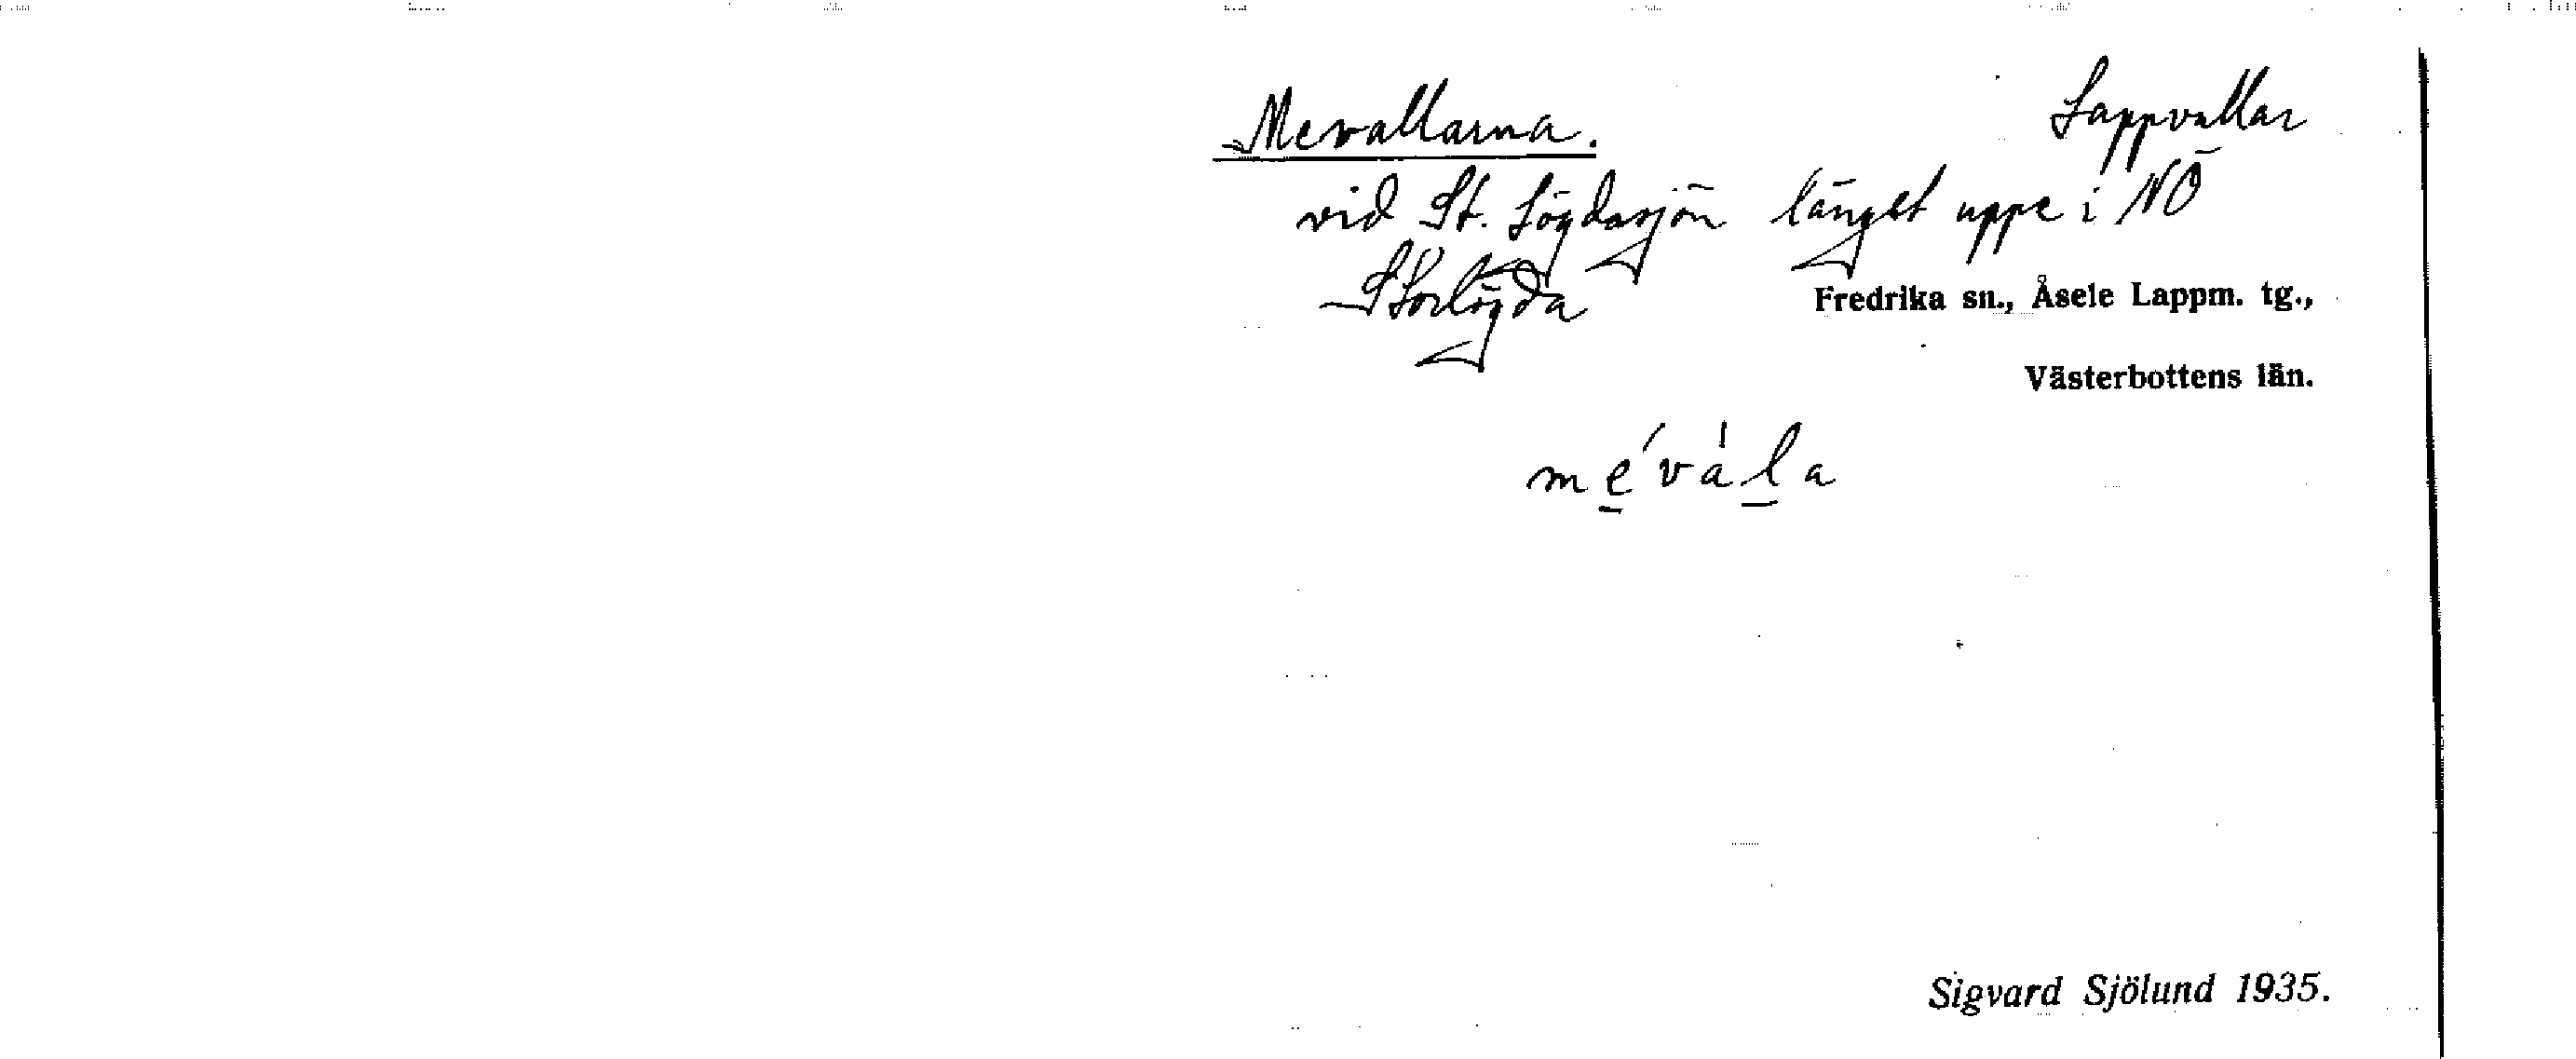 Mevallarna. Lappvallar
vid St. Lögdasjön längst uppe i NÖ
Storlögda
Fredrika sn., Åsele Lappm. tg.,
Västerbottens län.
me̱´vàḻa
Sigvard Sjölund 1935.